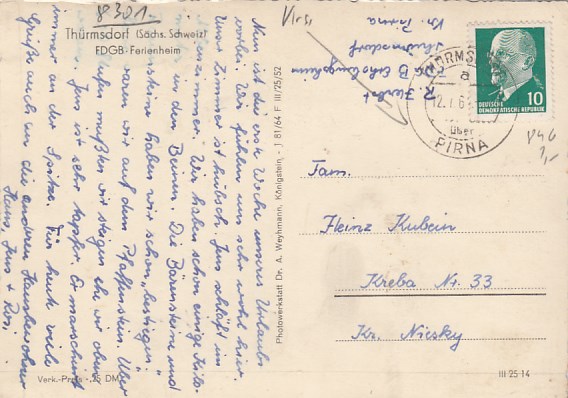 8301
Thürmsdorf (Sächs. Schweiz)
FDGB-Ferienheim
Nun ist die erste Woche unseres Urlaubs
vorbei. Wir fühlen uns sehr wohl hier.
Unser Zimmer ist hübsch. Jens schläft im
Wir haben schon einige Kilo-
in den Beinen. Die Bärensteine und
haben wir schon „bestiegen".
waren wir auf dem Pfaffenstein. Über
Stufen mußten wir steigen ehe wir oben
Jens ist sehr tapfer. Er marschiert
immer an der Spitze. Für heute viele
Grüße auch an die anderen Hausbewohner
Hans, Jens + Rosi.
Verk.-Preis -,25 DM
Photowerkstatt Dr. A. Weyhmann, Königstein, - J 81/64 F III/25/52
R.
FDGB Erholungsheim
Thürmsdorf
Kr. Pirna
THÜRMSDORF
a
12.7.6
über
PIRNA
DEUTSCHE
DEMOKRATISCHE REPUBLIK
10
Fam.
Heinz Kubein
Kreba Nr. 33
Kr. Niesky
III 25-14